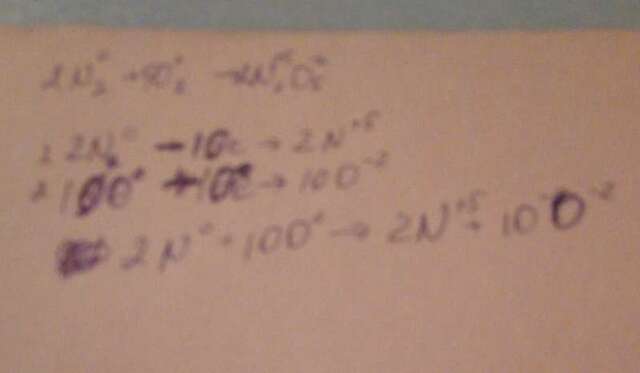 2N₂⁰ + 5O₂⁰ → 2N₂⁺⁵O₅⁻²
1 2N₂⁰ − 10e → 2N⁺⁵
2 10O⁰ + 10e → 10O⁻²
2N⁰ + 10O⁰ → 2N⁺⁵ + 10O⁻²